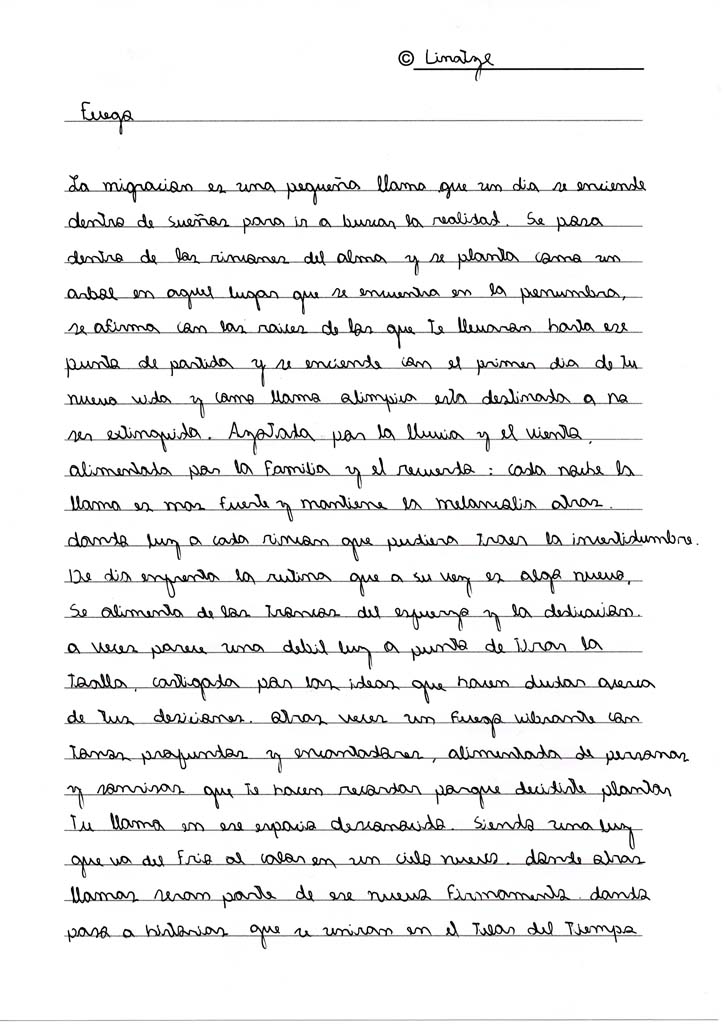 © Linatzel
Fuego
La migracion es una pequeña llama que un dia se enciende
dentro de sueños para ir a buscar la realidad. Se posa
dentro de los rincones del alma y se planta como un
arbol en aquel lugar que se encuentra en la penumbra,
se afirma con las raices de los que te llevaron hasta ese
punto de partida y se enciende con el primer dia de tu
nueva vida y como llama olimpica esta destinada a no
ser extinguida. Azotada por la lluvia y el viento,
alimentada por la familia y el recuerdo: cada noche la
llama es mas fuerte y mantiene la melancolia atras.
dando luz a cada rincon que pudiera traer la incertidumbre.
De dia enfrenta la rutina que a su vez es algo nuevo,
Se alimenta de los troncos del esfuerzo y la dedicacion.
a veces parece una debil luz a punto de tirar la
toalla, castigada por las ideas que hacen dudar acerca
de tus desiciones. otras veces un fuego vibrante con
tonos profundos y encantadores, alimentada de personas
y sonrisas que te hacen recordar porque decidiste plantar
Tu llama en ese espacio desconocido. Siendo una luz
que va del frio al calor en un cielo nuevo. donde otras
llamas seran parte de ese nuevo firmamento. dando
paso a historias que se uniran en el Telar del Tiempo